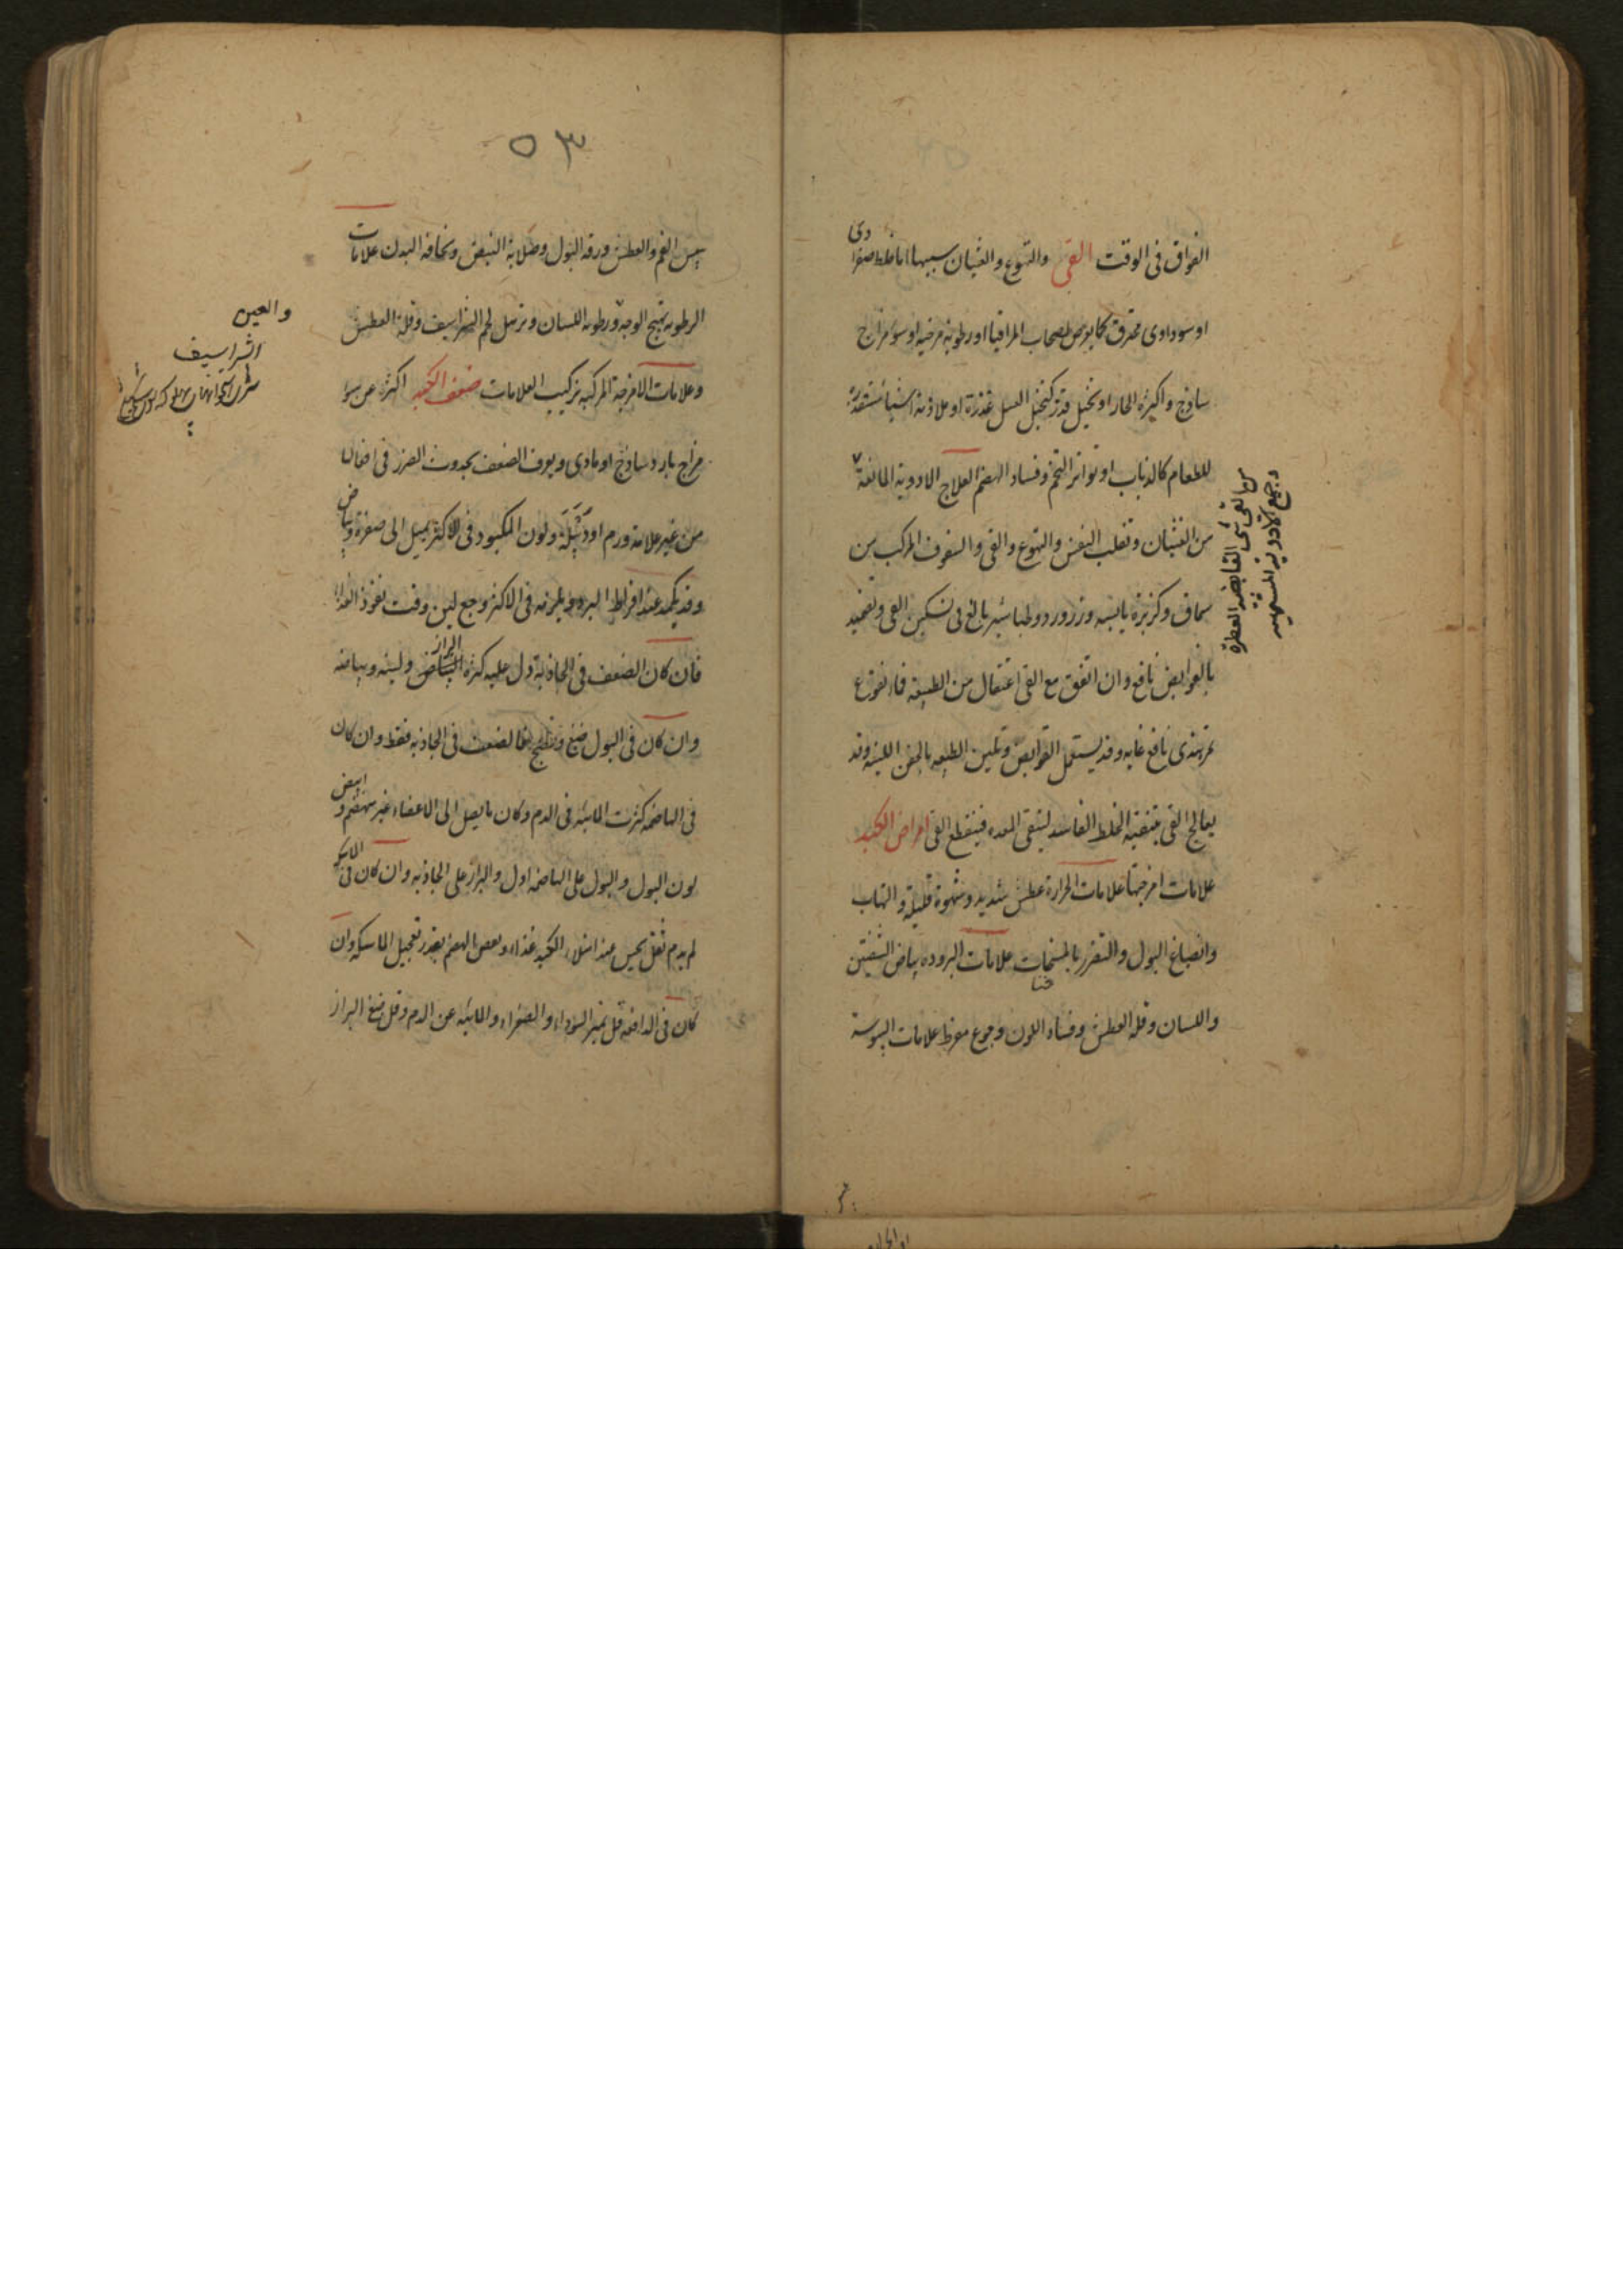 الفواق فى الوقت القى والتهوع والغثيان سببها اما خلط صفراوى
او سوداوى محترق كما يعرض لصحاب المراقيا او رطوبة مرخية او سوء مزاج
ساذج واكثره الحار او تخيل قذر كتخيل العسل عذرة او ملاذمة اشيا مستقذرة
للطعام كالذباب او تواتر التخم وفساد الهضم العلاج الادوية المانعة
من الغثيان وتقلب النفس والتهوع والقى والسفوف المركب من
سماق وكزبرة يابسه وزرورد وطباشير بالغ فى تسكين القى وتضميد
بالقوابض نافع وان اتفق مع القى اعتقال من الطبيعة فان نقوع
تمرهندى نافع غايه وقد يستعمل القوابض وتلين الطبيعه بالحقن اللينه وقد
يعالج القى بتنقية الخلط الفاسد لتنقى المعده فينقطع القى امراض الكبد
علامات امزجتها علامات الحرارة عطش شديد وشهوة قليلة والتهاب
وانصباغ البول والتضرر بالمسخنات علامات البروده بياض الشفتين
واللسان وقلة العطش وفساد اللون وجوع مفرط علامات اليبوسة
من القى شى القابضه العطرة
وجميع الادوية
٥٣
يبس الفم والعطش ورقه البول وصلابة النبض ونحافة البدن علامات
الرطوبه تهيج الوجه ورطوبه اللسان وترهل لحم الشراسيف وقلة العطش
وعلامات الامزجة المركبه تركيب العلامات ضعف الكبد اكثره عن سوء
مزاج بارد ساذج او مادى ويعرف الضعف بحدوث الضرر فى افعالها
من غير علامة ورم او دبيلة ولون المكبود فى الاكثر يميل الى صفرة وبياض
وقد يكمد عند افراط البرد ويلزمه فى الاكثر وجع لين وقت نفوذ الغذا
فان كان الضعف فى الجاذبة دل عليه كثرة البراز ولينه وبياضه
وان كان فى البول صبغ ونضج فالضعف فى الجاذبه فقط وان كان
فى الهاضمه كثرت المائيه فى الدم وكان ما يصل الى الاعضاء غير منهضم وابيض
لون البول والبول على الهاضمه اول والبراز على الجاذبه وان كان فى الماسكه
لم يدم ثقل يحس عند امتلاء الكبد غذاء ونقص الهضم بقدر تعجيل الماسكه وان
كان فى الدافعه قل تميز السوداء والصفراء والمائيه عن الدم وقل صبغ البراز
والعين
الشراسيف